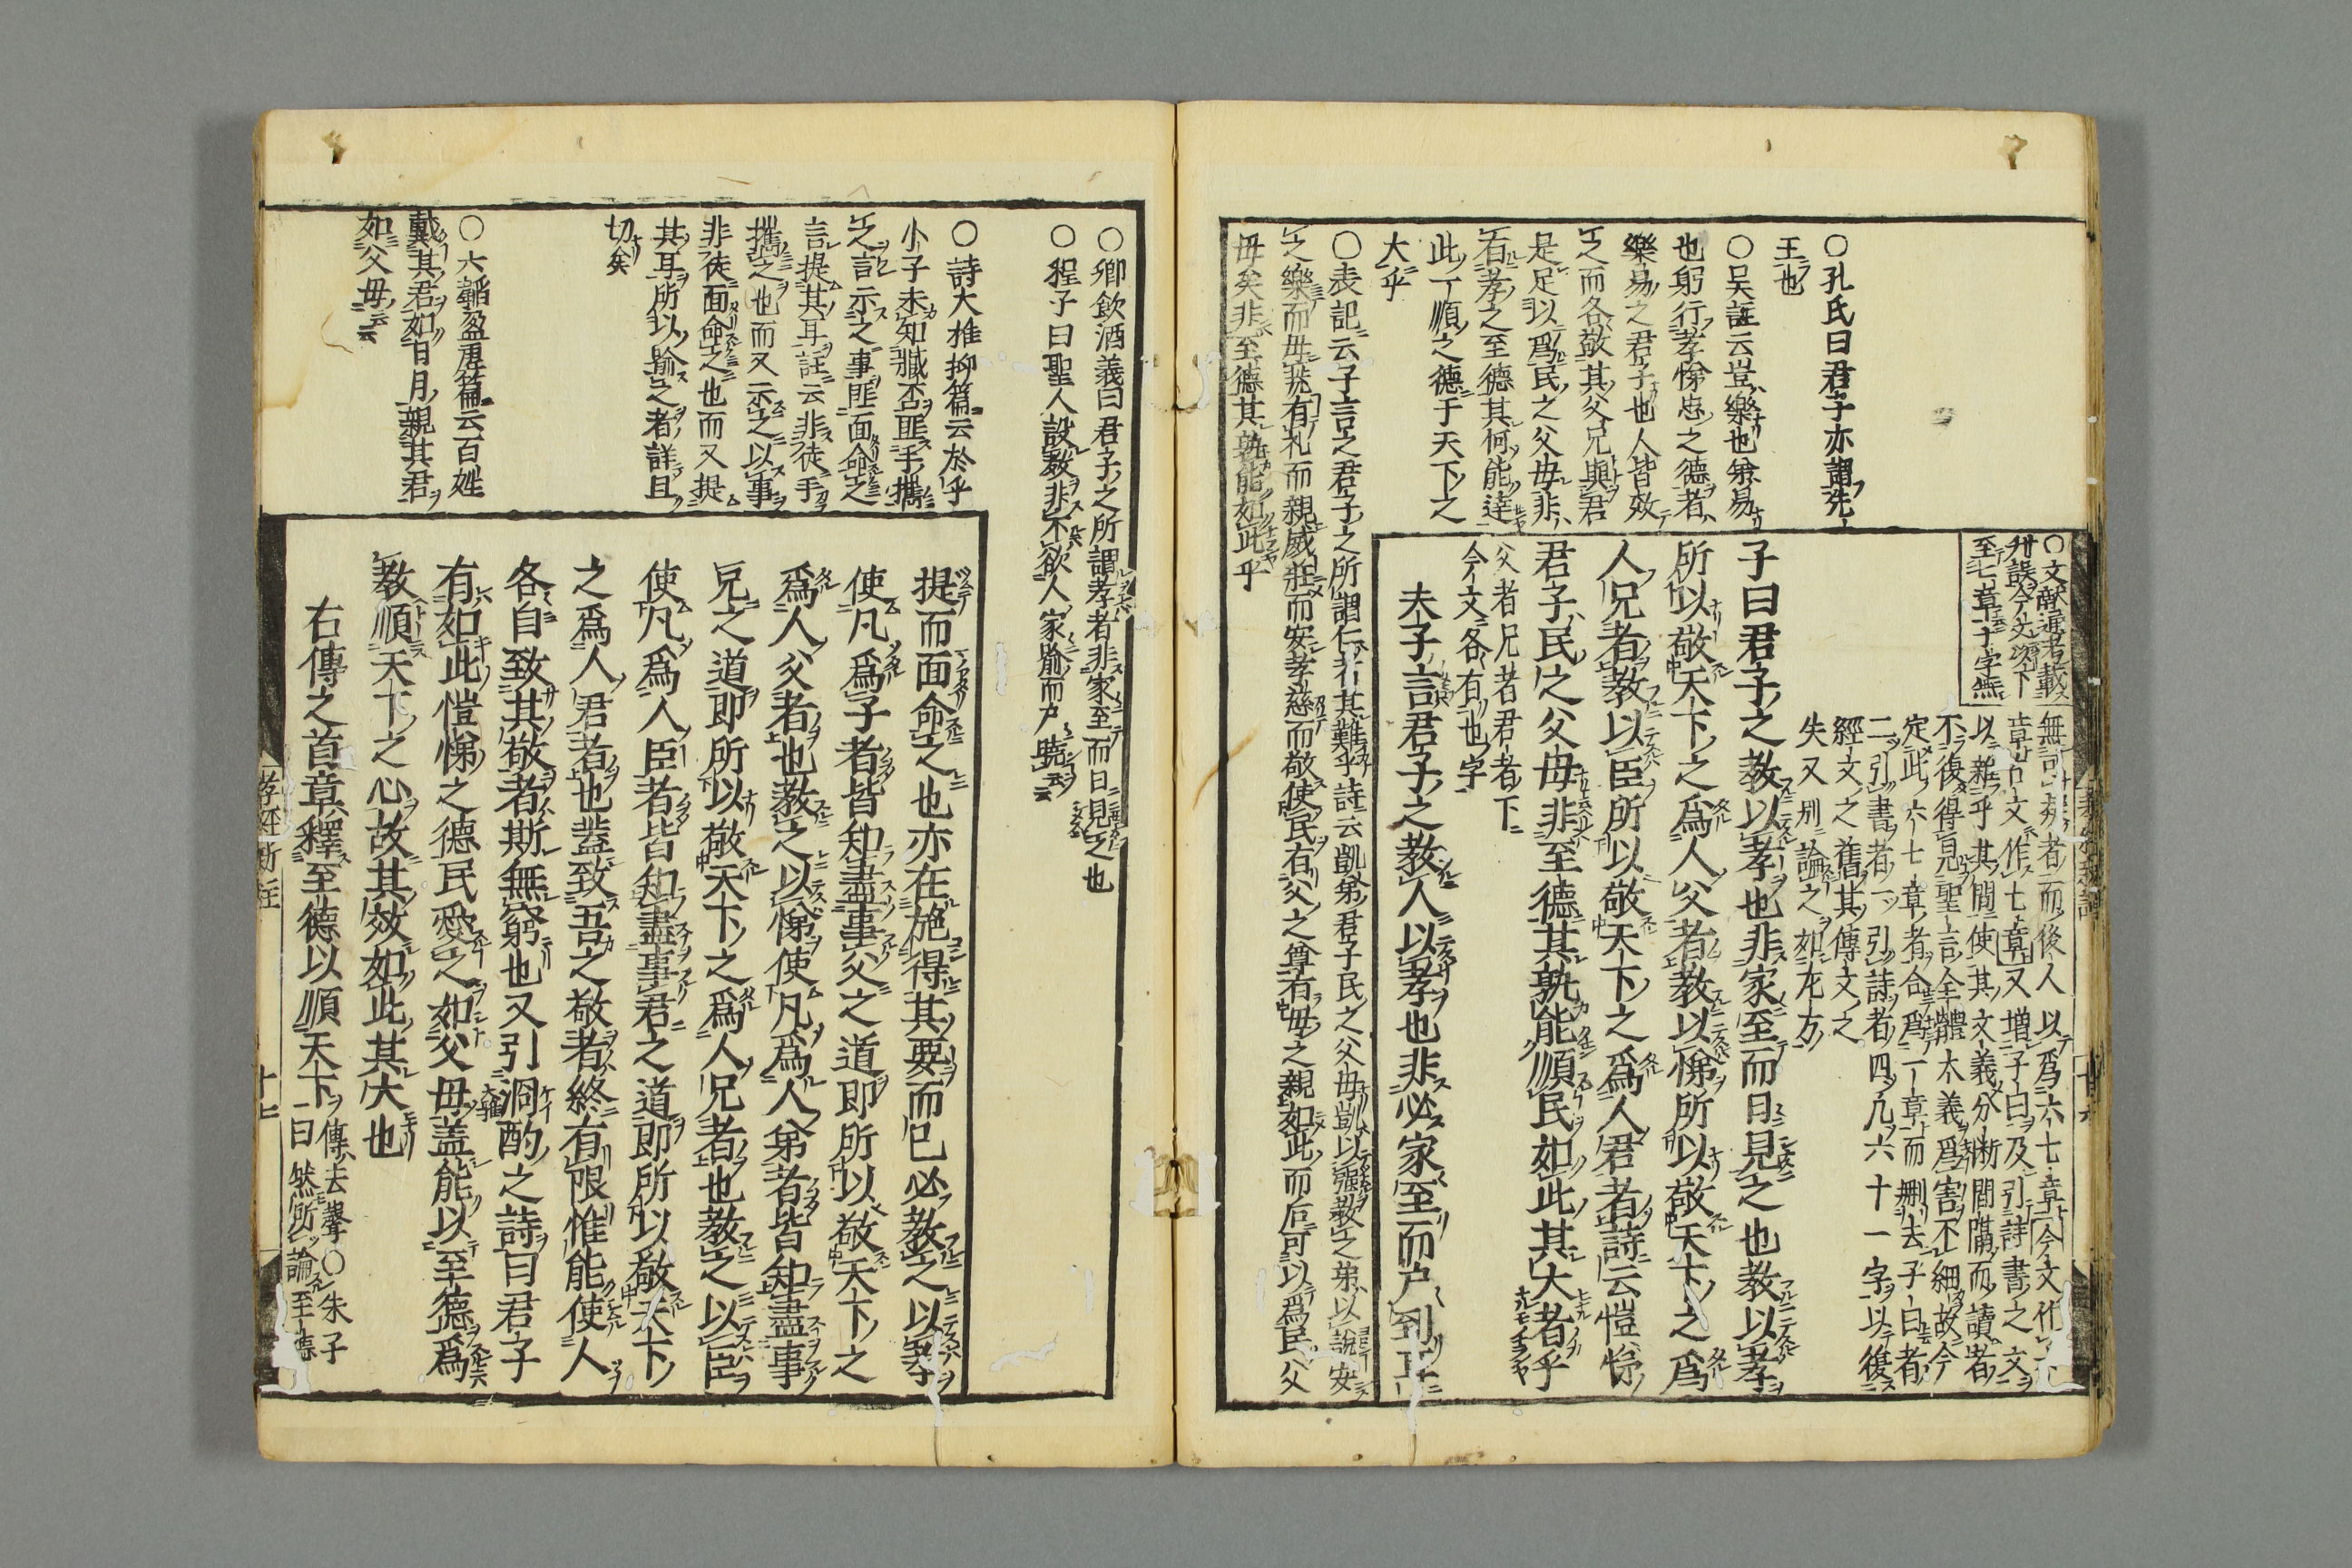 ○孔氏曰君子亦謂先
王也
○吴註云豈樂也弟易
也躬行孝悌忠之德者
樂易之君子也人皆效
之而各敬其父兄與君
是足以爲民之父母非
右孝之至德其何能達
此丁順之德于天下之
大乎
○表記云子言之君子之所謂仁者其難乎詩云凱弟君子民之父母凱以强教之弟以說安
之樂而毋荒有礼而親威莊而安孝慈而敬使民有父之尊有母之親如此而后可以爲民父
毋矣非至德其孰能如此乎
○文献通考載
至七章十字無
無者而後人以爲六七章今文作六
章古文作七章又增子曰及引詩書之文
以雜乎其間使其文義分断間隔而讀者
不復得見聖言全體大義爲害不細故今
定此六七章者合爲一章而刪去子曰者
二引書者一引詩者四凢六十一字以復
經文之舊其傳文之
失又别論之如左方
子曰君子之教以孝也非家至而日見之也教以孝
所以敬天下之爲人父者教以悌所以敬天下之爲
人兄者教以臣所以敬天下之爲人君者詩云愷悌
君子民之父毋非至德其孰能順民如此其大者乎
父者兄者君者下
今文各有也字
夫子言君子之教人以孝也非必家至而户到耳
○鄉飲酒義曰君子之所謂孝者非家至而日見之也
○程子曰聖人設教非不欲人家喻而户曉云云
○詩大雅抑篇云於乎
小子未知臧否匪手攜
之言示之事匪面命之
言提其耳註云非徒手
攜之也而又示之以事
非徒面命之也而又提
其耳所以喻之者詳且
切矣
○六韜盈虛篇云百姓
戴其君如日月親其君
如父母云云
提而面命之也亦在施得其要而已必教之以孝
使凡爲子者皆知盡事父之道即所以敬天下之
爲人父者也教之以悌使凡爲人弟者皆知盡事
兄之道即所以敬天下之爲人兄者也教之以臣
使凡爲人臣者皆知盡事君之道即所以敬天下
之爲人君者也蓋致吾之敬者終有限惟能使人
各自致其敬者斯無窮也又引泂酌之詩曰君子
有如此愷悌之德民愛之如父母盖能以至德爲
教順天下之心故其效如此其大也
右傳之首章釋至德以順天下傳去聲○朱子
一曰然所論至德
孝經新註
十七